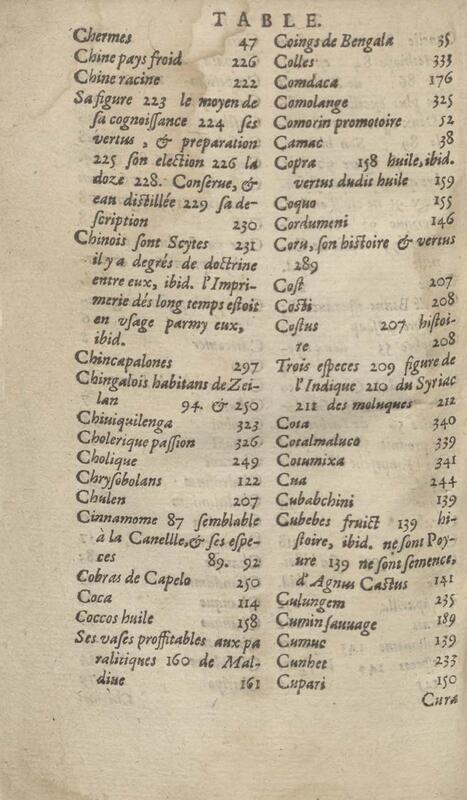 TABLE.
Chermes 47
Chine pays froid 226
Chine racine 222
Sa figure 223 le moyen de
sa cognoissance 224 ses
vertus, & preparation
225 son election 226 la
doze 228. Conserue, &
eau distillée 229 sa de-
scription 230
Chinois sont Scytes 231
il y a degrés de doctrine
entre eux, ibid. l'Impri-
merie dés long temps estoit
en vsage parmy eux,
ibid.
Chincapalones 297
Chingalois habitans de Zei-
lan 94. & 250
Chiuiquilenga 323
Cholerique passion 326
Cholique 249
Chrysobolans 122
Chulen 207
Cinnamome 87 semblable
à la Canellle, & ses espe-
ces 89. 92
Cobras de Capelo 250
Coca 114
Coccos huile 158
Ses vases proffitables aux pa
ralitiques 160 de Mal-
diue 161
Coings de Bengala 35
Colles 333
Comdaca 176
Comolange 325
Comorin promotoire 52
Camac 38
Copra 158 huile, ibid.
vertus dudit huile 159
Coquo 155
Cordumeni 146
Coru, son histoire & vertus
289
Cost 207
Costi 208
Costus 207 histoi-
re 208
Trois especes 209 figure de
l'Indique 210 du Syriac
211 des moluques 212
Cota 340
Cotalmaluco 339
Cotumixa 341
Cua 244
Cubabchini 139
Cubebes fruict 139 hi-
stoire, ibid. ne sont Poy-
ure 139 ne sont semence,
d'Agnus Castus 141
Culungem 235
Cumin sauuage 189
Cumuc 139
Cunhet 233
Cupari 150
Cura